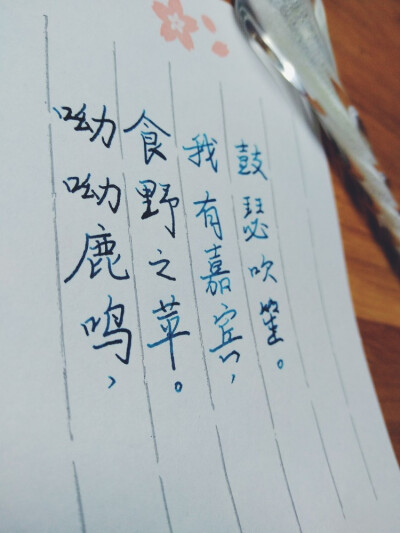 呦呦鹿鸣，
食野之苹。
我有嘉宾，
鼓瑟吹笙。